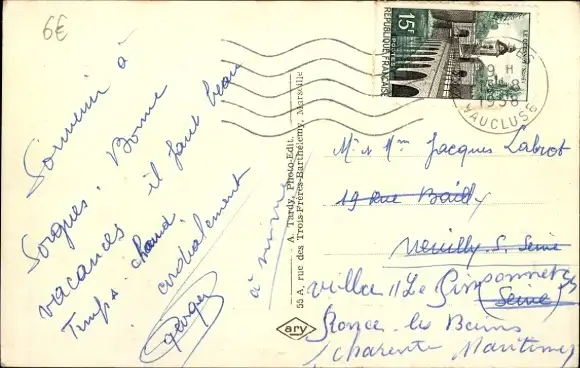 6€
Souvenir à
Sorgues. Bonne
vacances il faut beau
Temps. chaud
cordialement
Georges
à
A. Tardy, Photo-Edit.
55 A, rue des Trois-Frères-Barthélemy, Marseille
ary
15F
POSTES
RÉPUBLIQUE FRANÇAISE
LE QUESNOY (NORD)
9 H
1958
VAUCLUSE
Mr et Mme Jacques Labrot
19 Rue Bailly
Neuilly. S. Seine
(Seine)
villa "Le
Ronce. les Bains
Charente Maritime